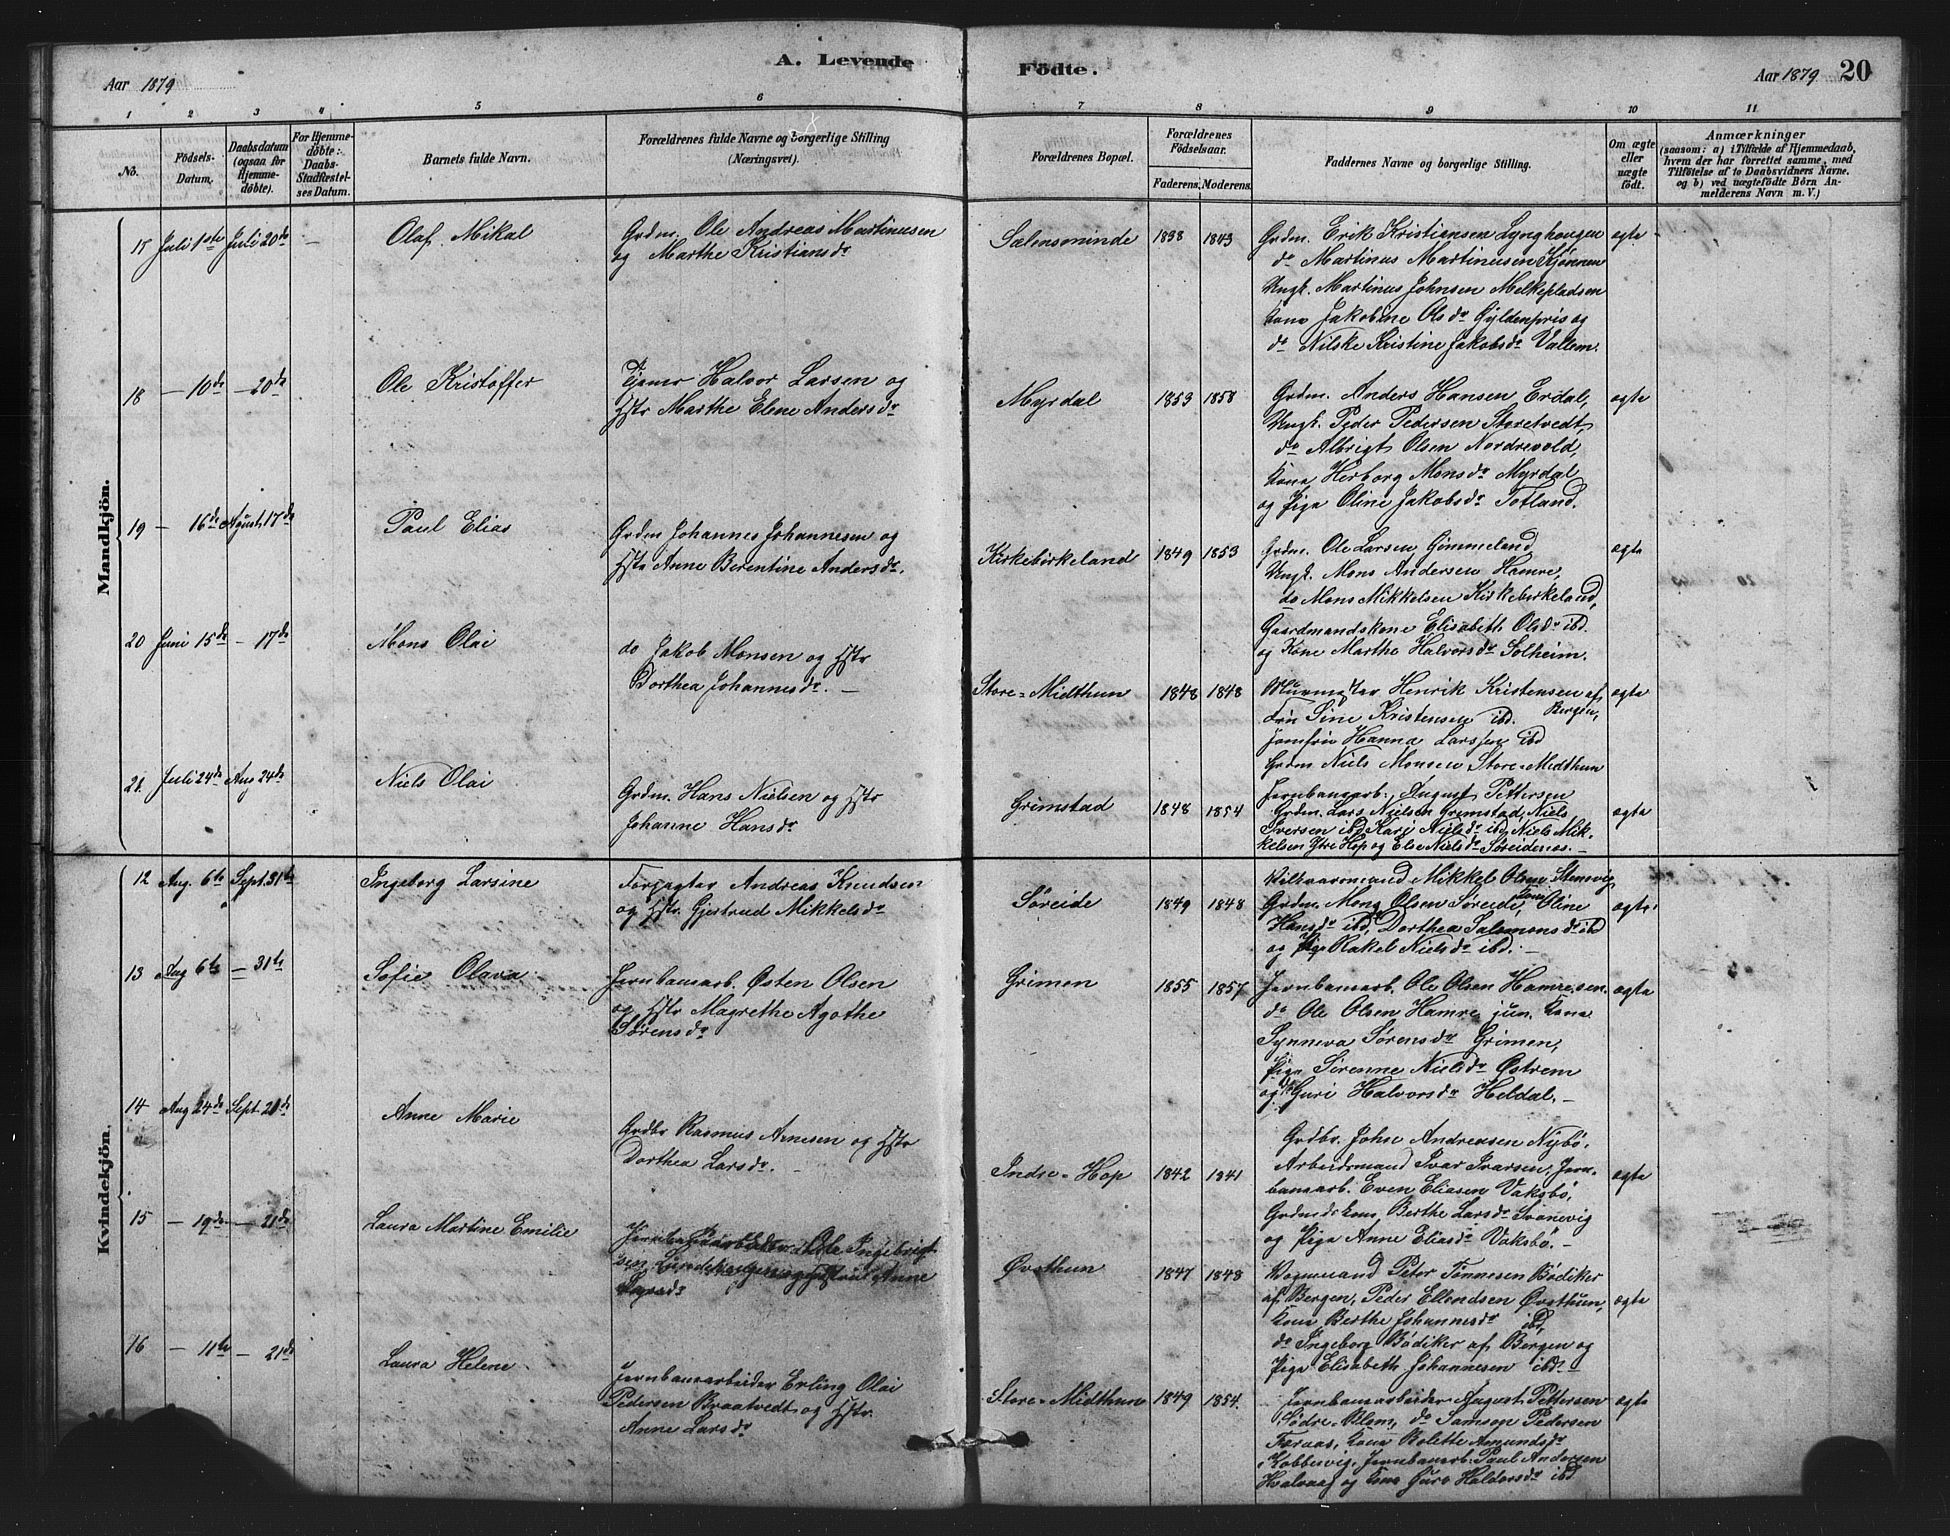 Aar 1879
A. Levende
Födte.
Aar 1879
20
1 2 3 4 5 6 7 8 9 10 11
No.
Födsels-
Datum.
Daabsdatum
(ogsaa for
Hjemme-
döbte).
For Hjemme-
döbte:
Daabs-
Stadfæstel-
ses Datum.
Barnets fulde Navn.
Forældrenes fulde Navne og borgerlige Stilling
(Næringsvei).
Forældrenes Bopæl.
Forældrenes
Födselsaar.
Faderens. Moderens.
Faddernes Navne og borgerlige Stilling.
Om ægte
eller
uægte
födt.
Anmærkninger
(saasom: a) i Tilfælde af Hjemmedaab,
hvem der har forrettet samme, med
Tilföielse af to Daabsvidners Navne.
og b) ved uægtefödte Börn An-
melderens Navn m. V.)
Mandkjön.
17 Juli 1ste Juli 20de —
Olaf Mikal
Grdm. Ole Andreas Martinusen
og Marthe Kristiansdr
Sælensminde 1838 1843
Grdm. Erik Kristiansen Lynghougen
do Martinus Martinusen
Ungk. Martinus Johnsen Melkepladsen
Kone Jakobine Olsdr Gyldenpris og
do Nilske Kristine Jakobsdr Vallem.
ægte
18 — 10de — 20de
Ole Kristoffer
Tjener Halvor Larsen og
Hstr Marthe Elene Andersdr
Myrdal 1853 1858
Grdm. Anders Hansen Erdal,
Ungk. Peder Pedersen Storetvedt,
do Albrigt Olsen Nordrevold,
Kone Herborg Monsdr Myrdal
og Pige Oline Jakobsdr Totland.
ægte
19 — 16de August 17de
Paul Elias
Grdm Johannes Johannesen og
Hstr Anne Berentine Andersdr.
Kirkebirkeland 1849 1853
Grdm. Ole Larsen Gimmeland
Ungk. Mons Andersen Hamre,
do Mons Mikkelsen Kirkebirkeland,
Gaardmandskone Elisabeth Olsdr ibd.
og Kone Marthe Halvorsdr Solheim.
ægte
20 Juni 15de — 17de
Mons Olai
do Jakob Monsen og Hstr
Dorthea Johannesdr. —
Store-Midthun 1848 1848
Murmester Henrik Kristensen af
Bergen,
Fru Sine Kristensen ibd.
Jomfru Hanna Larssen ibd
Grdm Niels Monsen Store-Midthun
Jernbanearb. August Pettersen
ægte
21. Juli 24de Aug 24de
Niels Olai
Grdm. Hans Nielsen og Hstr
Johanne Hansdr
Grimstad 1848 1854
Grdm. Lars Nielsen Grimstad, Niels
Iversen ibd, Kari Nielsdr ibd, Niels Mik-
kelsen Ytre Hop og Else Nielsdr Søreidenes. —
ægte
Kvindekjön.
12 Aug. 6te Sept. 31te
Ingeborg Larsine
Forpagter Andreas Knudsen
og Hstr. Gjertrud Mikkelsdr
Søreide 1849 1848
Mikkel Olsen Stenevig
Grdm. Mons Olsen Søreide, Kone Oline
Hansdr ibd, Dorthea Salomonsdr ibd
og Pige Rakel Nielsdr ibd. —
ægte.
13 Aug 6te — 31te
Sofie Olava
Jernbanearb. Østen Olsen
og Hstr Magrethe Agathe
Sørensdr
Grimen 1855 1857
Jernbanearb. Ole Olsen Hamre sen.
do Ole Olsen Hamre jun. Kone
Synneva Sørensdr Grimen,
Pige Sirenne Nielsdr Østrem
og do Guri Halvorsdr Heldal. —
ægte
14 Aug 24de Sept. 21de
Anne Marie
Grdbr Rasmus Arnesen og Hstr
Dorthea Larsdr. —
Indre-Hop 1842 1841
Grdbr. John Andreasen Nybø,
Arbeidsmand Ivar Ivarsen, Jern-
banearb. Even Eliasen Vaksbø,
Grdmdskone Berthe Larsdr Svanevig
og Pige Anne Eliasdr Vaksbø. —
ægte
15 — 19de — 21de
Laura Martine Emilie
Jernbanearbeider Ole Ingebrigt-
sen og Hstr Anne
Øvsthun 1847 1848
Vognmand Peter Tønnesen Bødiker
af Bergen, Peder Ellendsen Øvsthun,
Kone Berthe Johannesdr ibd,
do Ingeborg Bødiker af Bergen og
Pige Elisabeth Johannesen ibd.
ægte
16 — 11te — 21de
Laura Helene
Jernbanearbeider Erling Olai
Pedersen Braatvedt og Hstr.
Anne Larsdr
Store-Midthun 1849 1854.
Jernbanearbeider August Pettersen
Södre-Blem, do Samson Pedersen
Færaas, Kone Bolette Amundsdr
Kobbevig, Jernbanearb. Paul Andersen
Hvalvaag og Kone Guro Haldorsdr ibd
ægte